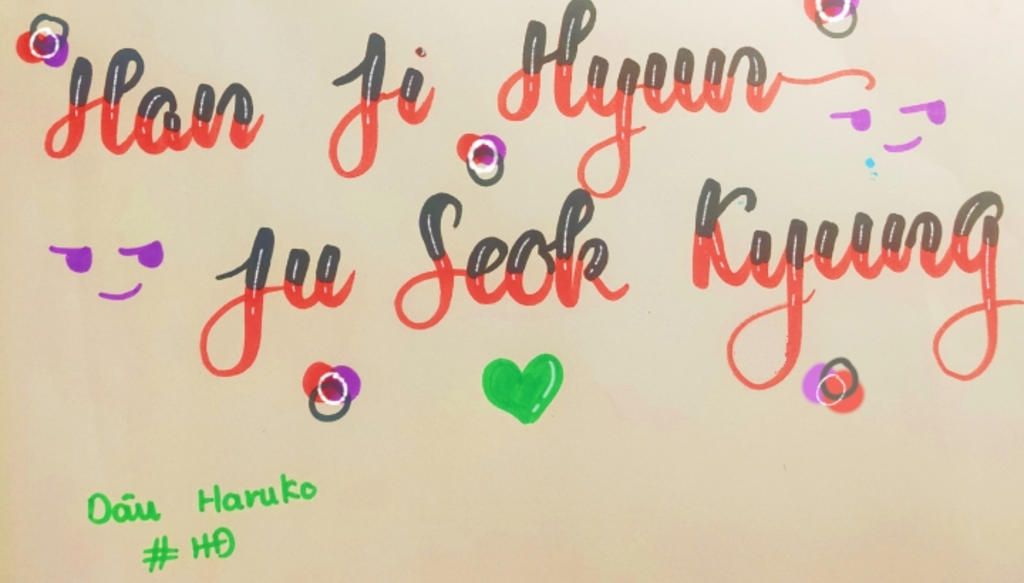 Han Ji Hyun
Ju Seok Kyung
Dâu Haruko
# HĐ